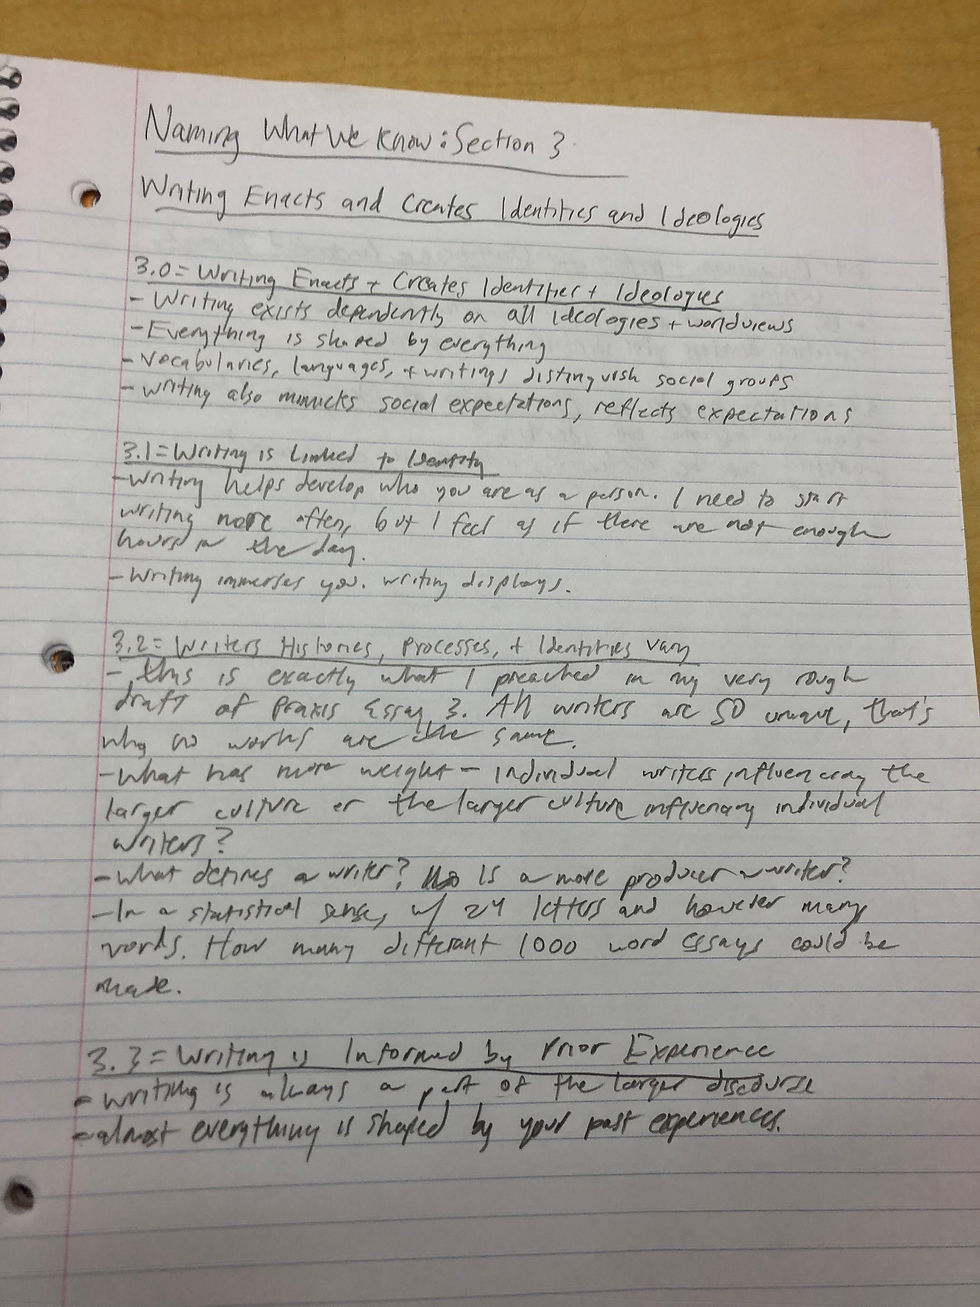 Naming What We Know: Section 3
Writing Enacts and Creates Identities and Ideologies
3.0 = Writing Enacts + Creates Identities + Ideologies
- Writing exists dependently on all ideologies + worldviews
- Everything is shaped by everything
- Vocabularies, languages, + writings distinguish social groups
- writing also mimicks social expectations, reflects expectations
3.1 = Writing is Linked to Identity
- Writing helps develop who you are as a person. I need to start
writing more often, but I feel as if there are not enough
hours in the day.
- Writing immerses you. writing displays.
3.2 = Writers Histories, Processes, + Identities vary
- this is exactly what I preached in my very rough
draft of Praxis Essay 3. All writers are SO unique, that's
why no works are the same.
- What has more weight - individual writers influencing the
larger culture or the larger culture influencing individual
writers?
- What defines a writer? Is a more producer a writer?
- In a statistical sense, w/ 24 letters and however many
words. How many different 1000 word essays could be
made.
3.3 = Writing is Informed by Prior Experience
- writing is always a part of the larger discourse
- almost everything is shaped by your past experiences.